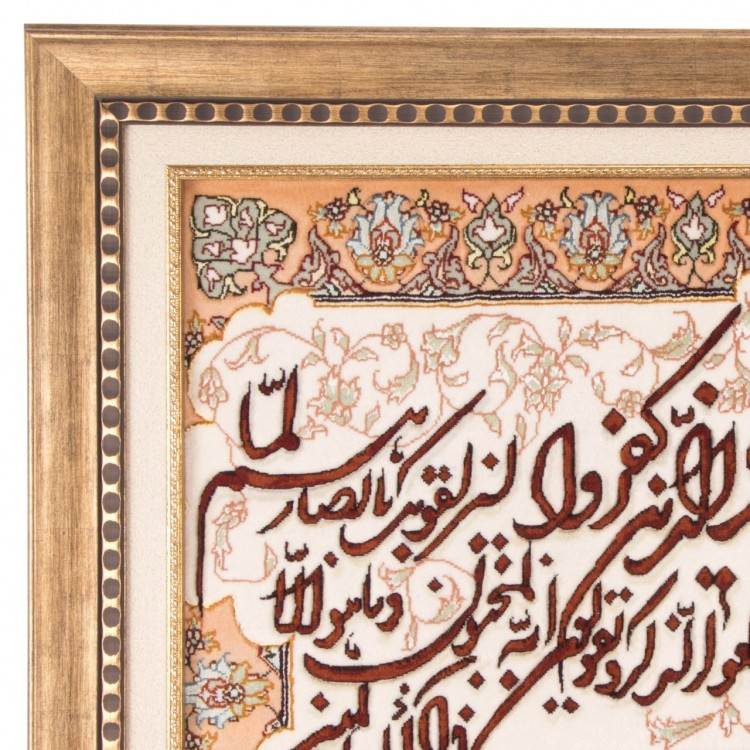 الذين كفروا ليزلقونك بابصارهم لما
سمعوا الذكر و يقولون انه لمجنون و ما هو الا